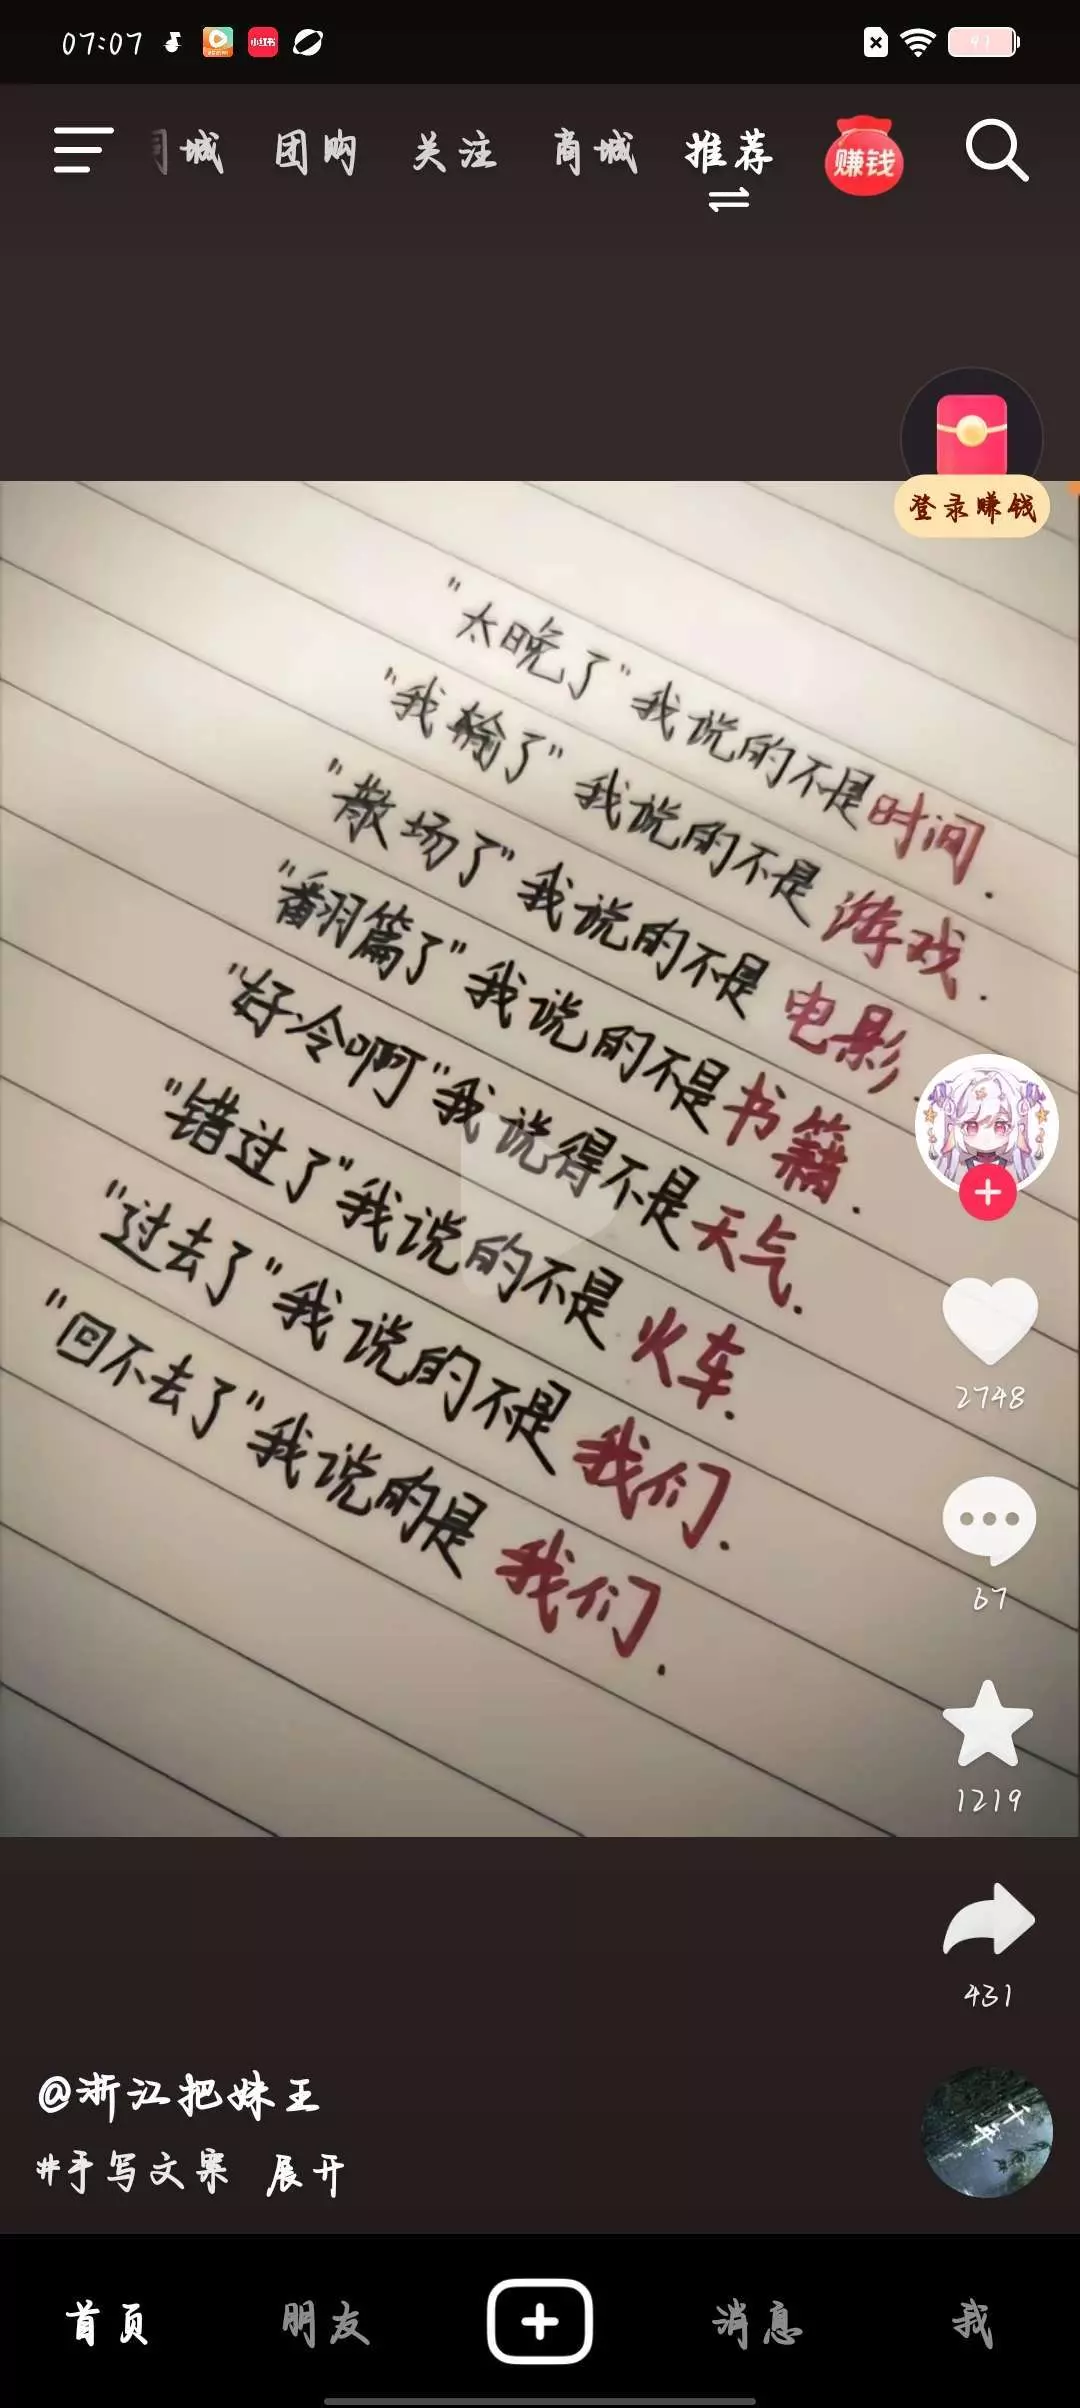 07:07
小红书
41
同城 团购 关注 商城 推荐 赚钱
登录赚钱
"太晚了"我说的不是时间.
"我输了"我说的不是游戏.
"散场了"我说的不是电影.
"翻篇了"我说的不是书籍.
"好冷啊"我说得不是天气.
"错过了"我说的不是火车.
"过去了"我说的不是我们.
"回不去了"我说的是我们.
2748
67
1219
431
@浙江把妹王
#手写文案 展开
首页 朋友 消息 我